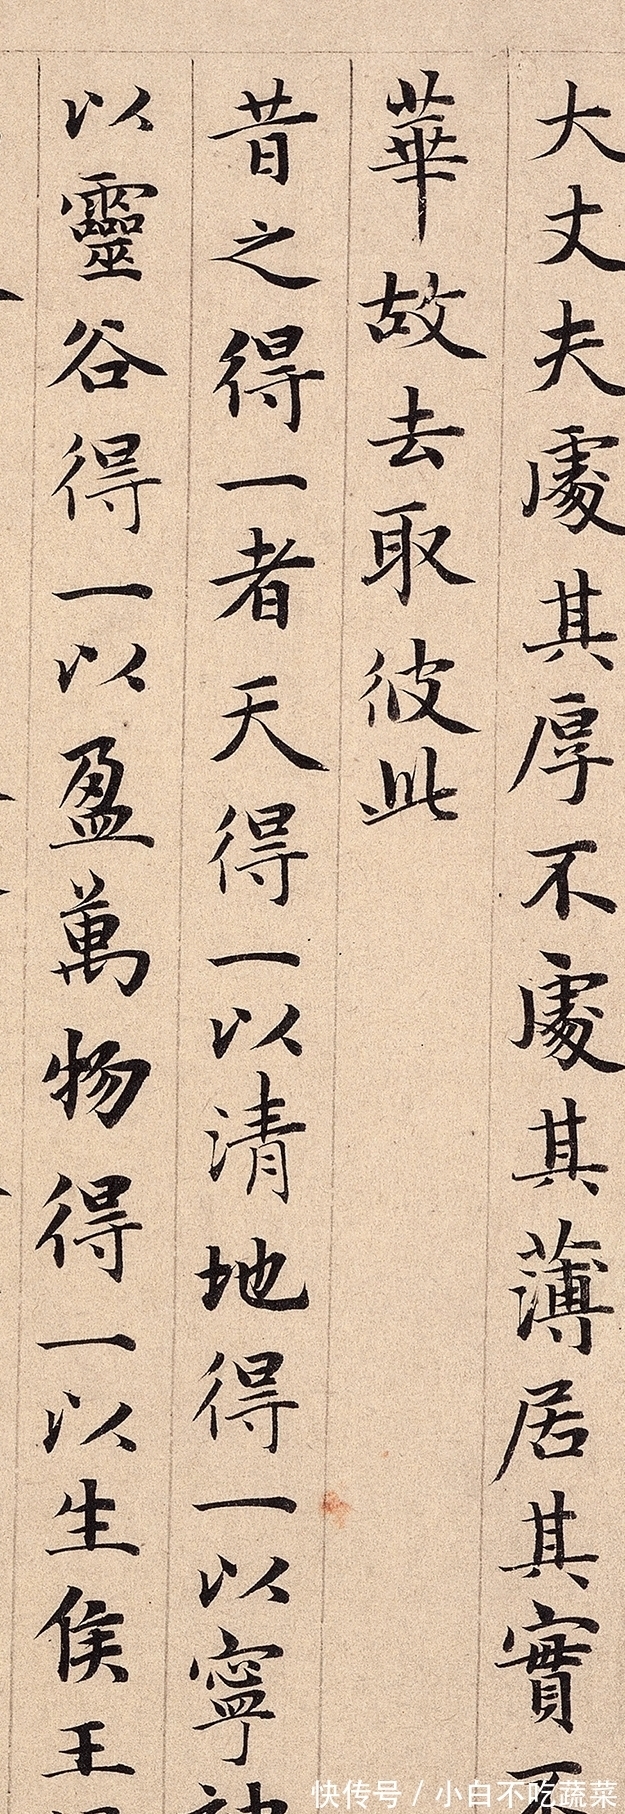 大丈夫處其厚不處其薄居其實不
華故去取彼此
昔之得一者天得一以清地得一以寧神
以靈谷得一以盈萬物得一以生侯王
快传号/小白不吃蔬菜